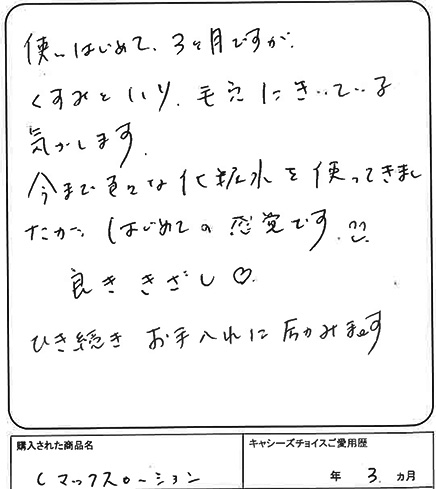 使いはじめて、3ヶ月ですが、
くすみといり、毛穴にきいている
気がします。
今まで色々な化粧水を使ってきまし
たが、はじめての感覚です。
良ききざし♡。
ひき続きお手入れに励みます
購入された商品名
キャシーズチョイスご愛用歴
Cマックスローション
年 3. ヵ月